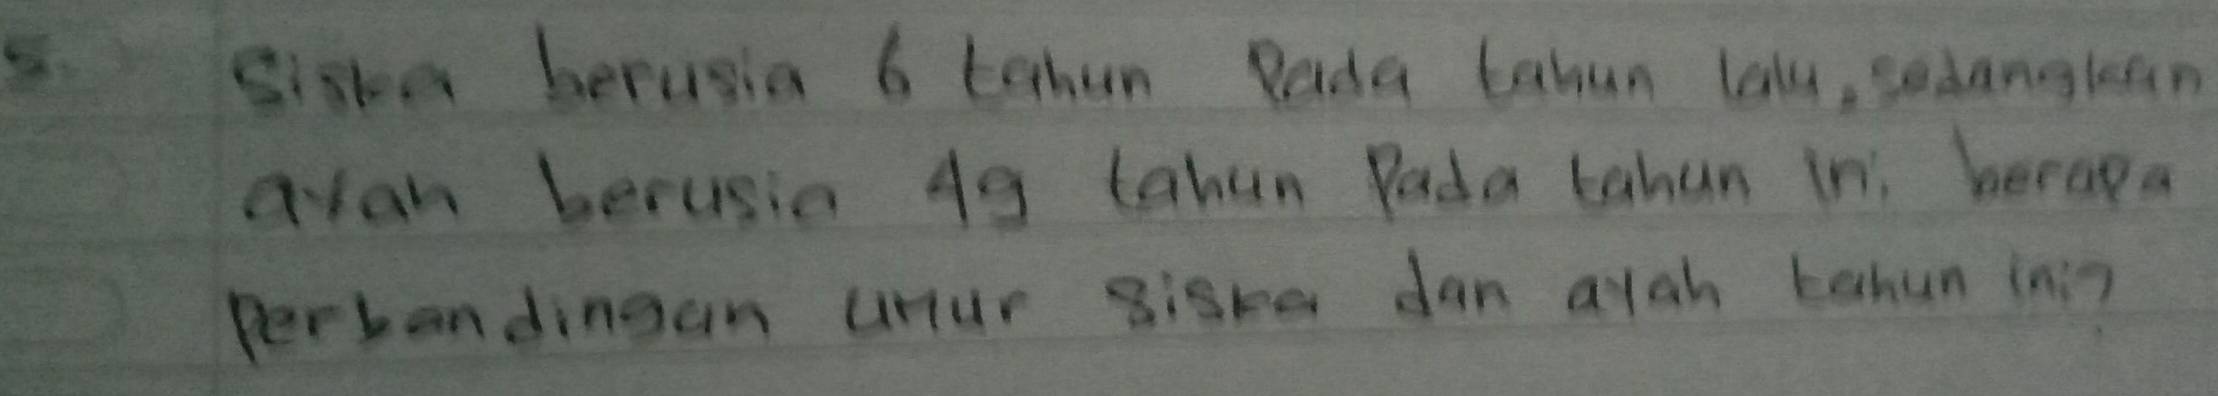 5. Siska berusia 6 tahun Pada tahun lalu, sedangkan
ayah berusia 49 tahun Pada tahun ini, berapa
Perbandingan umur siska dan ayah tahun ini?